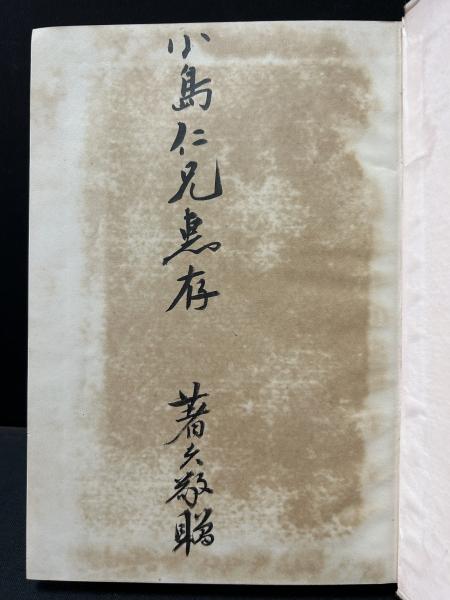 小島仁兄惠存
著者敬贈